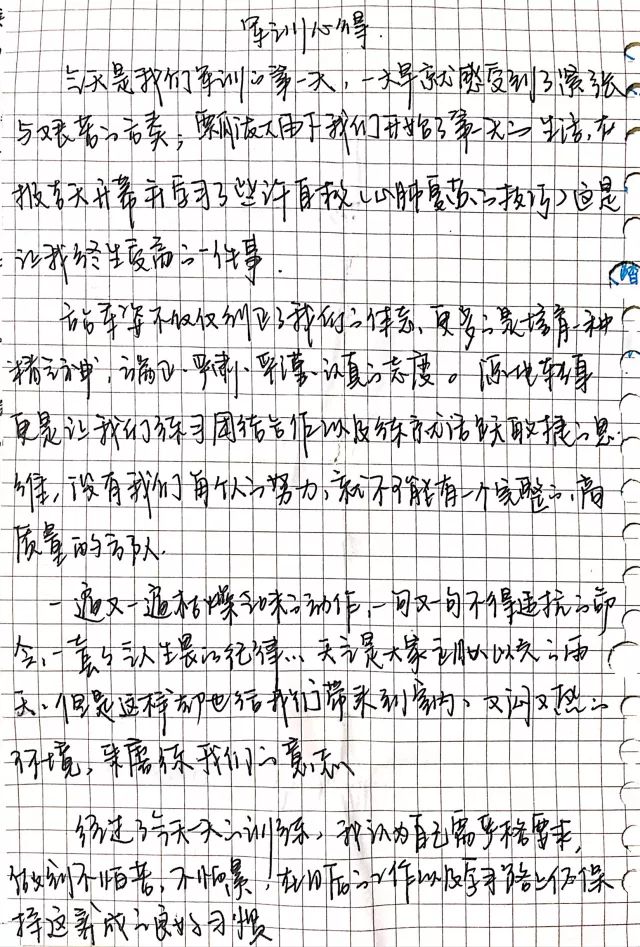 军训心得.
今天是我们军训的第一天,一大早就感受到了紧张
与艰苦的节奏;瓢泼大雨下我们开始了第一天的生活,在
报告大开幕并学习了些许自救(心肺复苏的技巧)这是
让我终生受益的一件事.
站军姿不仅仅训正了我们的体态,更多的是培育一种
精气神,端正、严肃、严谨、认真的态度。原地转身
更是让我们练习团结合作以及练就活跃敏捷的思
维,没有我们每个人的努力,就不可能有一个完整的,高
质量的方队.
一遍又一遍枯燥的动作,一句又一句不得违抗的命
令,一套令人生畏的纪律...天气是大家的雨
天,但是这样却也给我们带来到室内、又闷又热的
环境,来磨练我们的意志
经过了今天一天的训练,我认为自己需严格要求,
做到不怕苦,不怕累,在日后的工作以及学习路上依保
持这养成的良好习惯